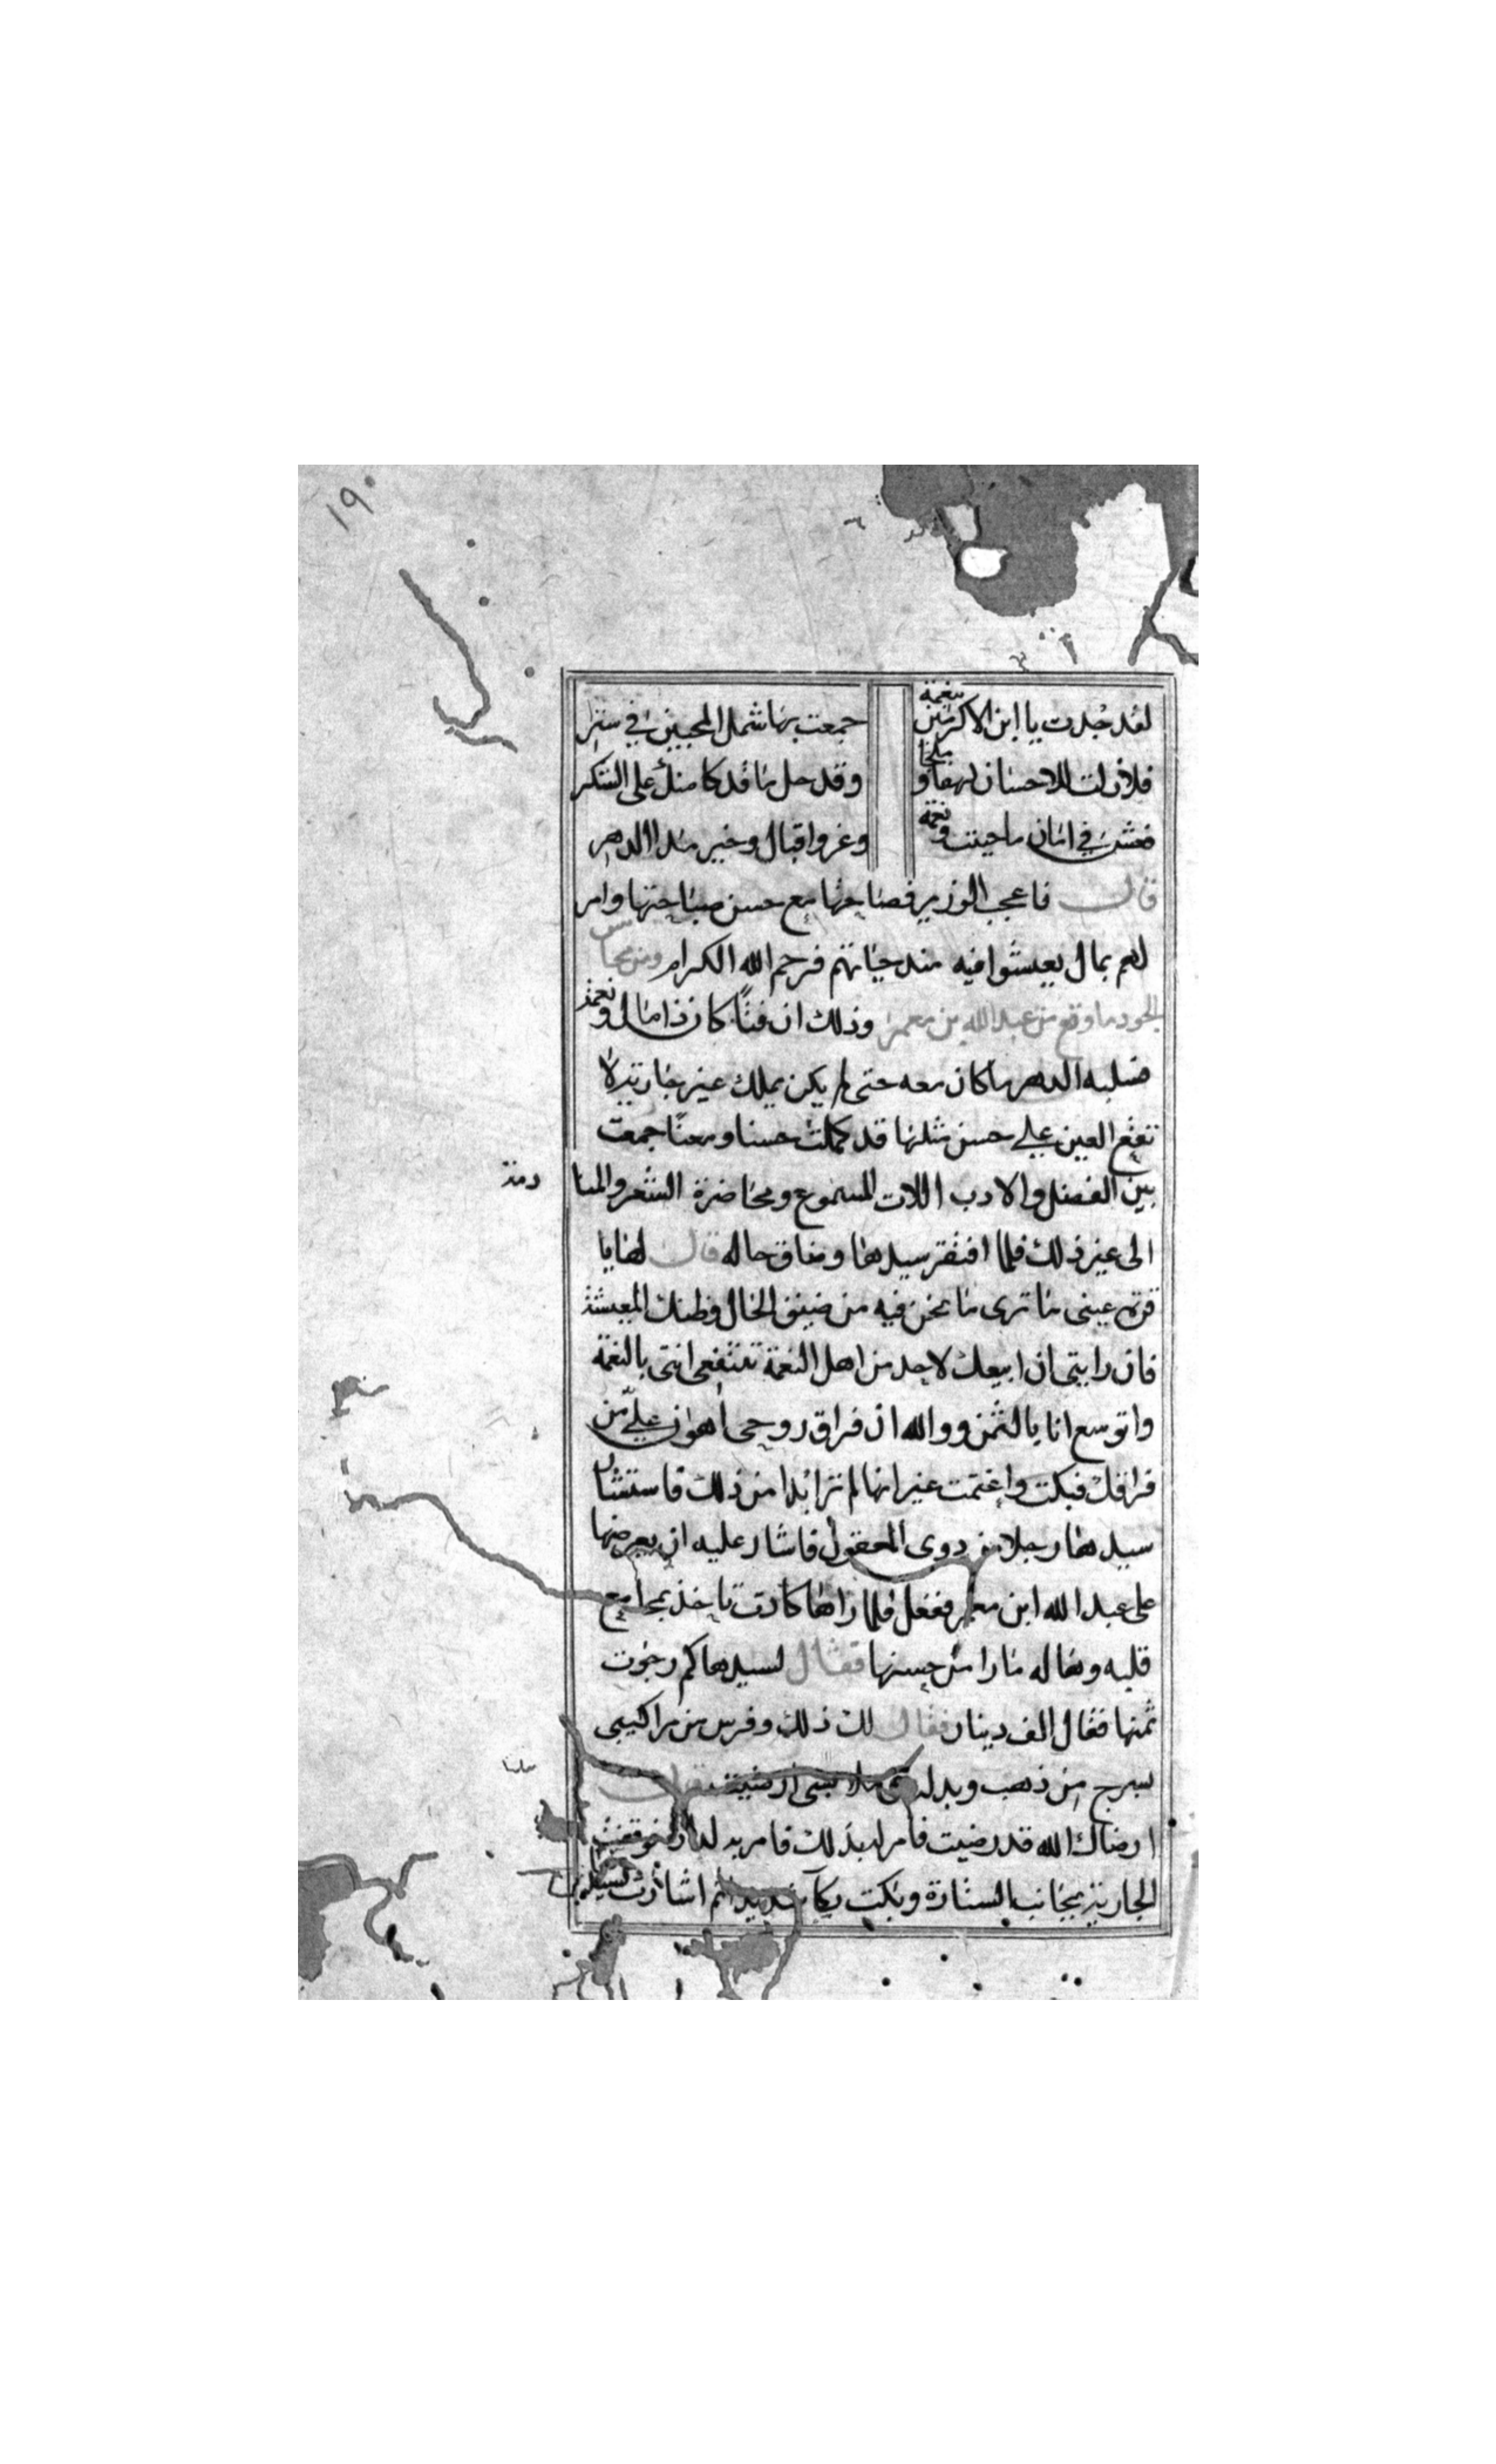 ١٩٠
لقد جدت يا ابن الاكرمين بنعمة جمعت بها شمل المحبين في ستر
فلازلت للاحسان لهفا وملجا وقد حل ما قد كا منك على الشكر
فعش في امان ما حييت ونعمة وعز واقبال وخير مدا الدهر
قال فاعجب الوزير فصاحتها مع حسن صباحتها وامر
لهم بمال يعيشوا فيه مدد حياتهم فرحم الله الكرام ومن محاسن
الجود ما وقع من عبد الله بن معمر وذلك ان فتًا كان ذا مال ونعمة
فسلبه الدهر ما كان معه حتى لم يكن يملك غير جارية لا
تقع العين على حسن مثلها قد كملت حسنا ومعنًا جمعت
بين الفضل والادب اللات المسموع ومحاضرة الشعر والمنا
دمة
الى غير ذلك فلما افتقر سيدها وضاق حاله قال لها يا
قرة عيني ما ترى ما نحن فيه من ضيق الحال وظنك المعيشة
فان رايتي ان ابيعك لاحد من اهل النعمة تنتفعي انتي بالنعمة
واتوسع انا بالثمن ووالله ان فراق روحي أهون عليّ من
فراقك فبكت واغتمت غير انها لم تر ابدا من ذلك فاستشار
سيدها رجلا من دوى العقول فاشار عليه ان يعرضها
على عبد الله ابن معمر ففعل فلما راها كادت تاخذ بمجامع
قلبه وهاله ما را من حسنها فقال لسيدها كم رجوت
ثمنها فقال الف دينار فقال لك ذلك وفرس من مراكيبي
بسرج من ذهب وبدلة من ملابسي ارضيت قال
ارضاك الله قد رضيت فامر له بذلك فامر به لدار
الجارية بجانب الستارة وبكت بكآ شديدا ثم اشارت لسيدها